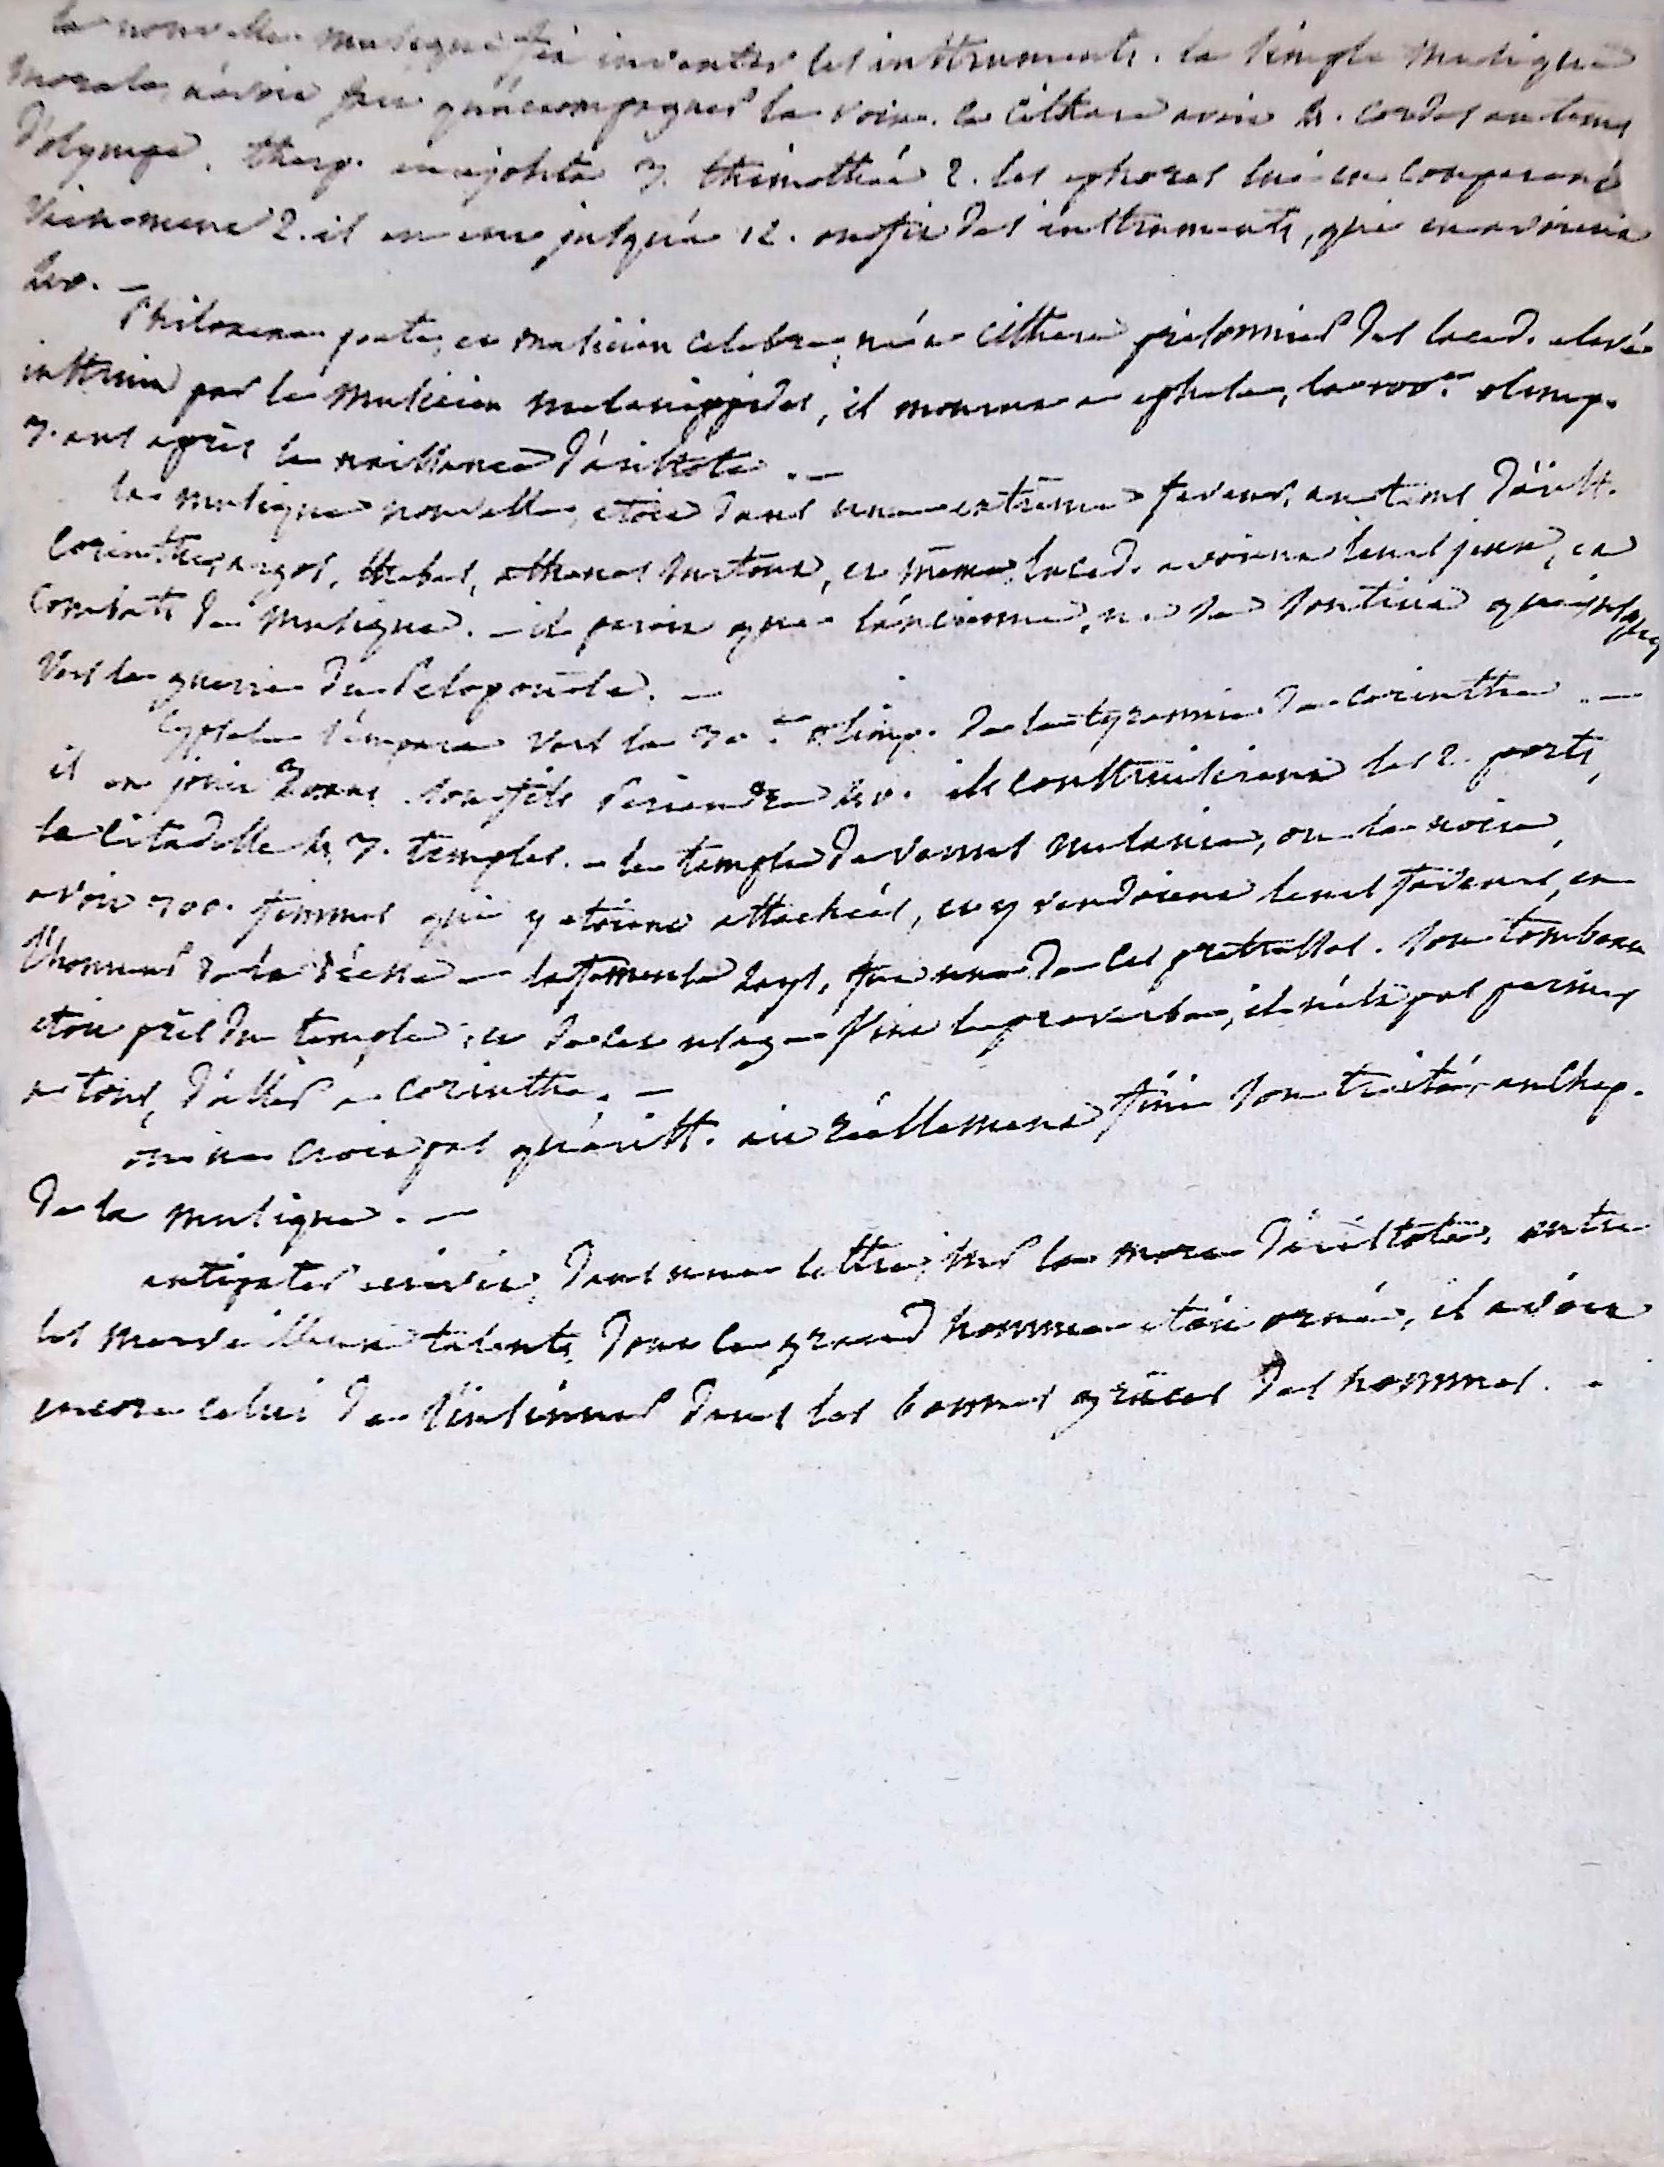 la nouvelle musique fit inventer les instruments. la simple musique
morale, n'avoit fait qu'accompagner la voix. la cithare avoit 4. cordes au tems
d'olympe. therp. en ajouta 3. thimothée 2. les ephores lui en couperent
vainement 2. il en eut jusqu'à 12. on fit des instruments, qui en avoient
40. —
Philoxene poete, et musicien celebre, né a cithere prisonnier des laced. elevé
instruit par le musicien melanippides, il mourut a ephese, la 100e. olimp.
7. ans après la naissance d'aristote. —
la musique nouvelle, etoit dans une extrême faveur, au tems d'arist.
Corinthe, argos, thebes, athenes surtout, et même laced. avoient leurs jeux, et
combats de musique. — il paroit que l'ancienne, ne se soutint que jusques
vers la guerre du Peloponèse. —
Cypsele s'empara vers la 30e. olimp. de la tyrannie de corinthe. —
il en jouit 30 ans. son fils Periandre 40. ils construisirent les 2. ports,
la citadelle & 7. temples. — le temple de venus melanis, ou la noire,
avoit 700. femmes qui y etoient attachées, et y vendoient leurs faveurs, en
l'honneur de la déesse — la fameuse Lays, fut une de ces pretresses. son tombeau
etoit près du temple; et de cet usage vint le proverbe, il n'est pas permis
a tous, d'aller a corinthe. —
on ne croit pas qu'arist. ait réellement fini son traité, au chap.
de la musique. —
antipater ecrivit, dans une lettre, sur la mort d'aristote, entre
les merveilleux talents, dont ce grand homme etoit orné, il avoit
encore celui de s'insinuer dans les bonnes grâces des hommes. —